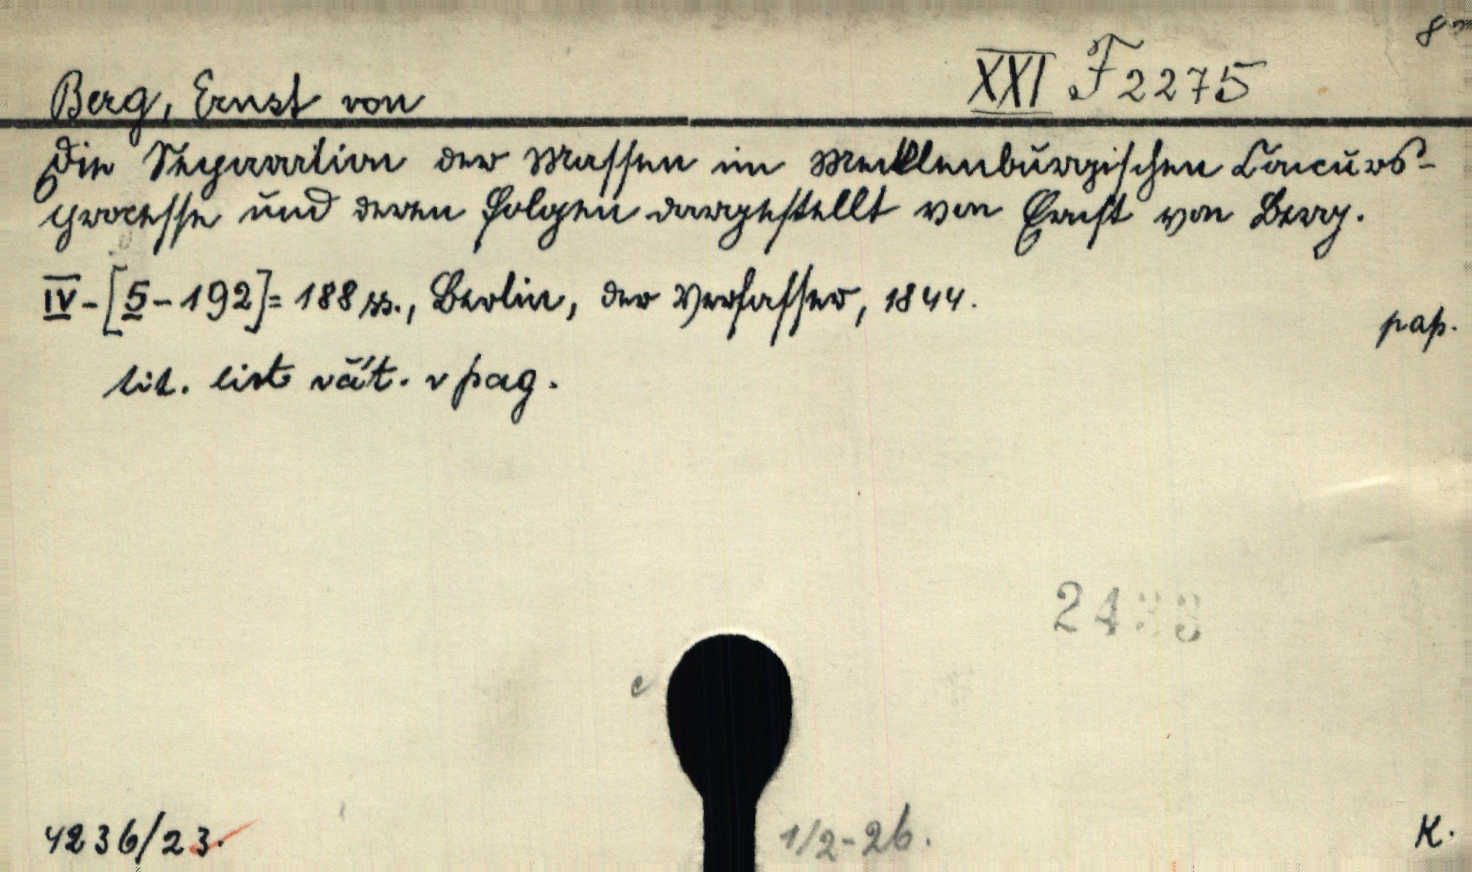 8°
XXI F 2275
Berg, Ernst von
Die Separation der Massen im Mecklenburgischen Concurs-
processe und deren Folgen dargestellt von Ernst von Berg.
IV-[5-192]= 188 ss., Berlin, der Verfasser, 1844.
pap.
tit. list vät. v pag.
24
c
4236/23.
1/2-26.
K.